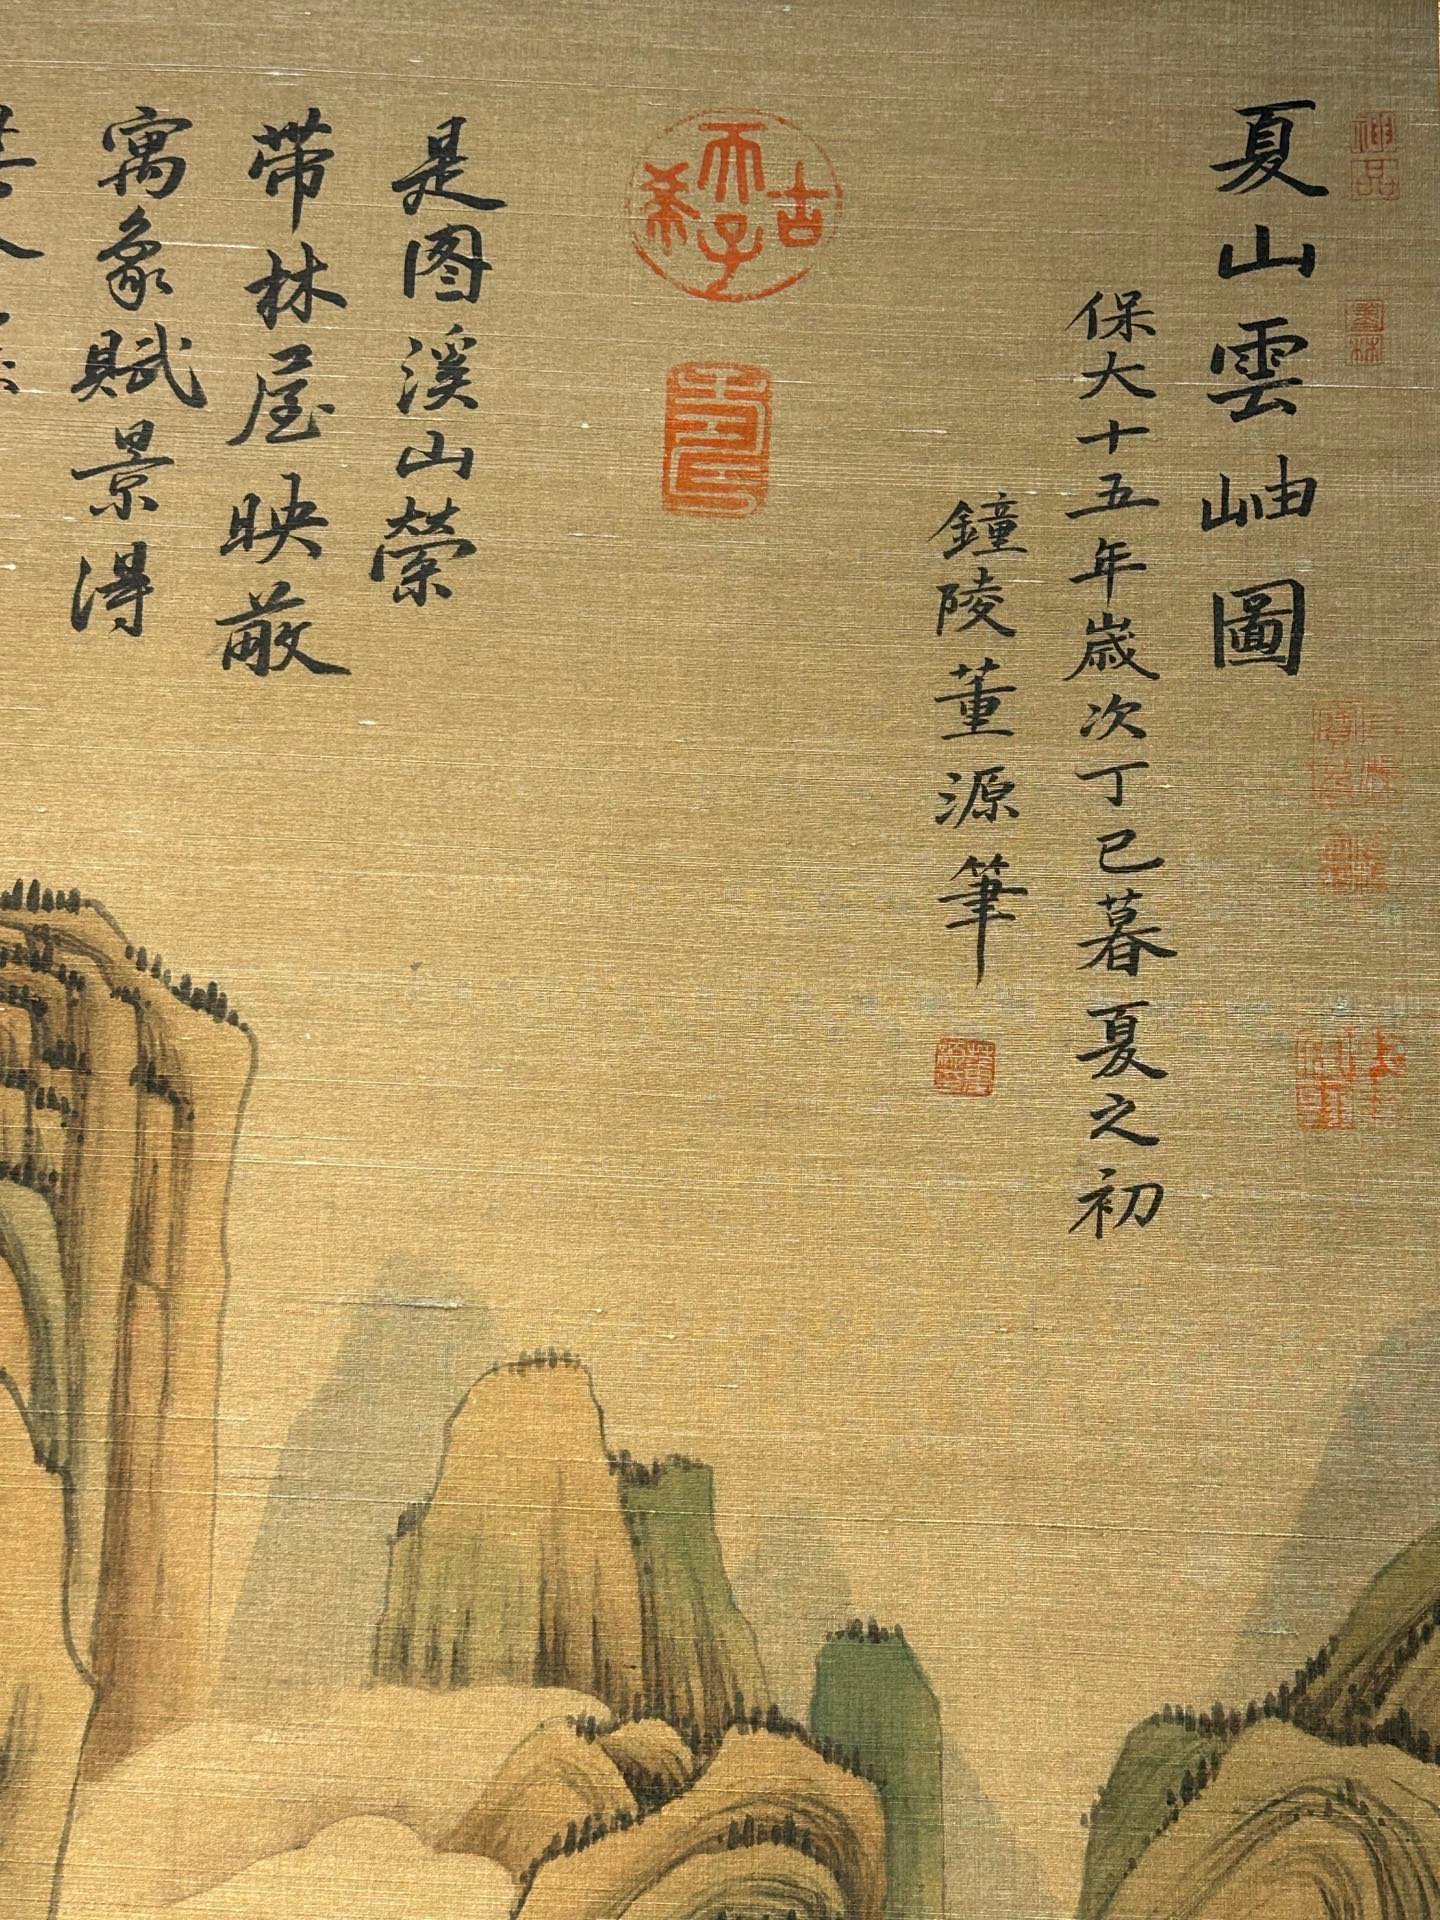 夏山雲岫圖
保大十五年歲次丁巳暮夏之初
鐘陵董源筆
神品
古希天子
壽
是图溪山縈
带林屋映蔽
寓象賦景得